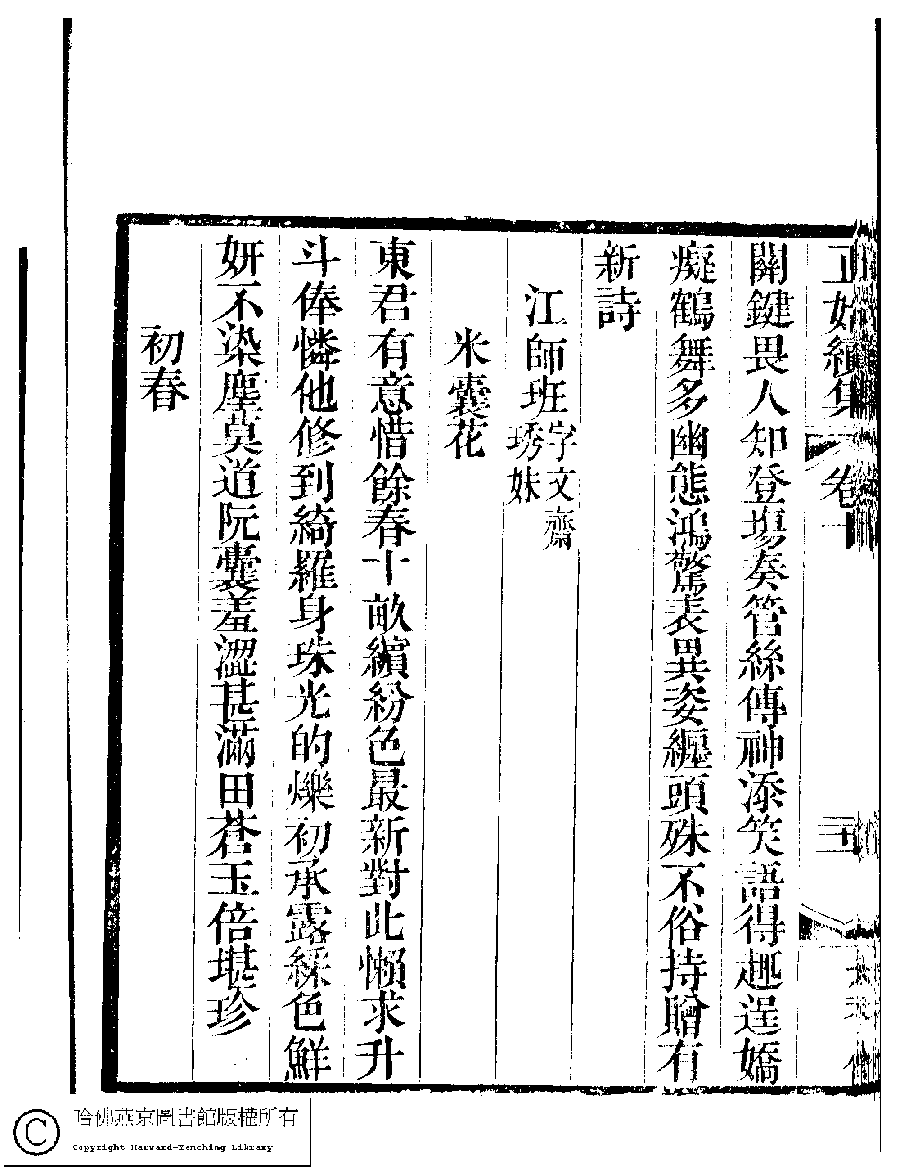 正始續集 卷十
關鍵畏人知登塲奏管絲傳神添笑語得趣逞嬌
癡鶴舞多幽態鴻驚表異姿纏頭殊不俗持贈有
新詩
江師班字文齋琇妹
米囊花
東君有意惜餘春十畝繽紛色最新對此懶求升
斗俸憐他修到綺羅身珠光的爍初承露綵色鮮
妍不染塵莫道阮囊羞澀甚滿田蒼玉倍堪珍
初春
哈佛燕京圖書館版權所有
Copyright Harvard-Yenching Library